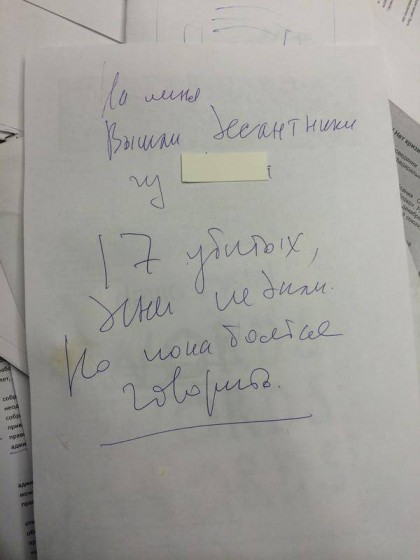 На меня
Вышли десантники
из
17 убитых,
две недели.
Но пока боятся
говорить.